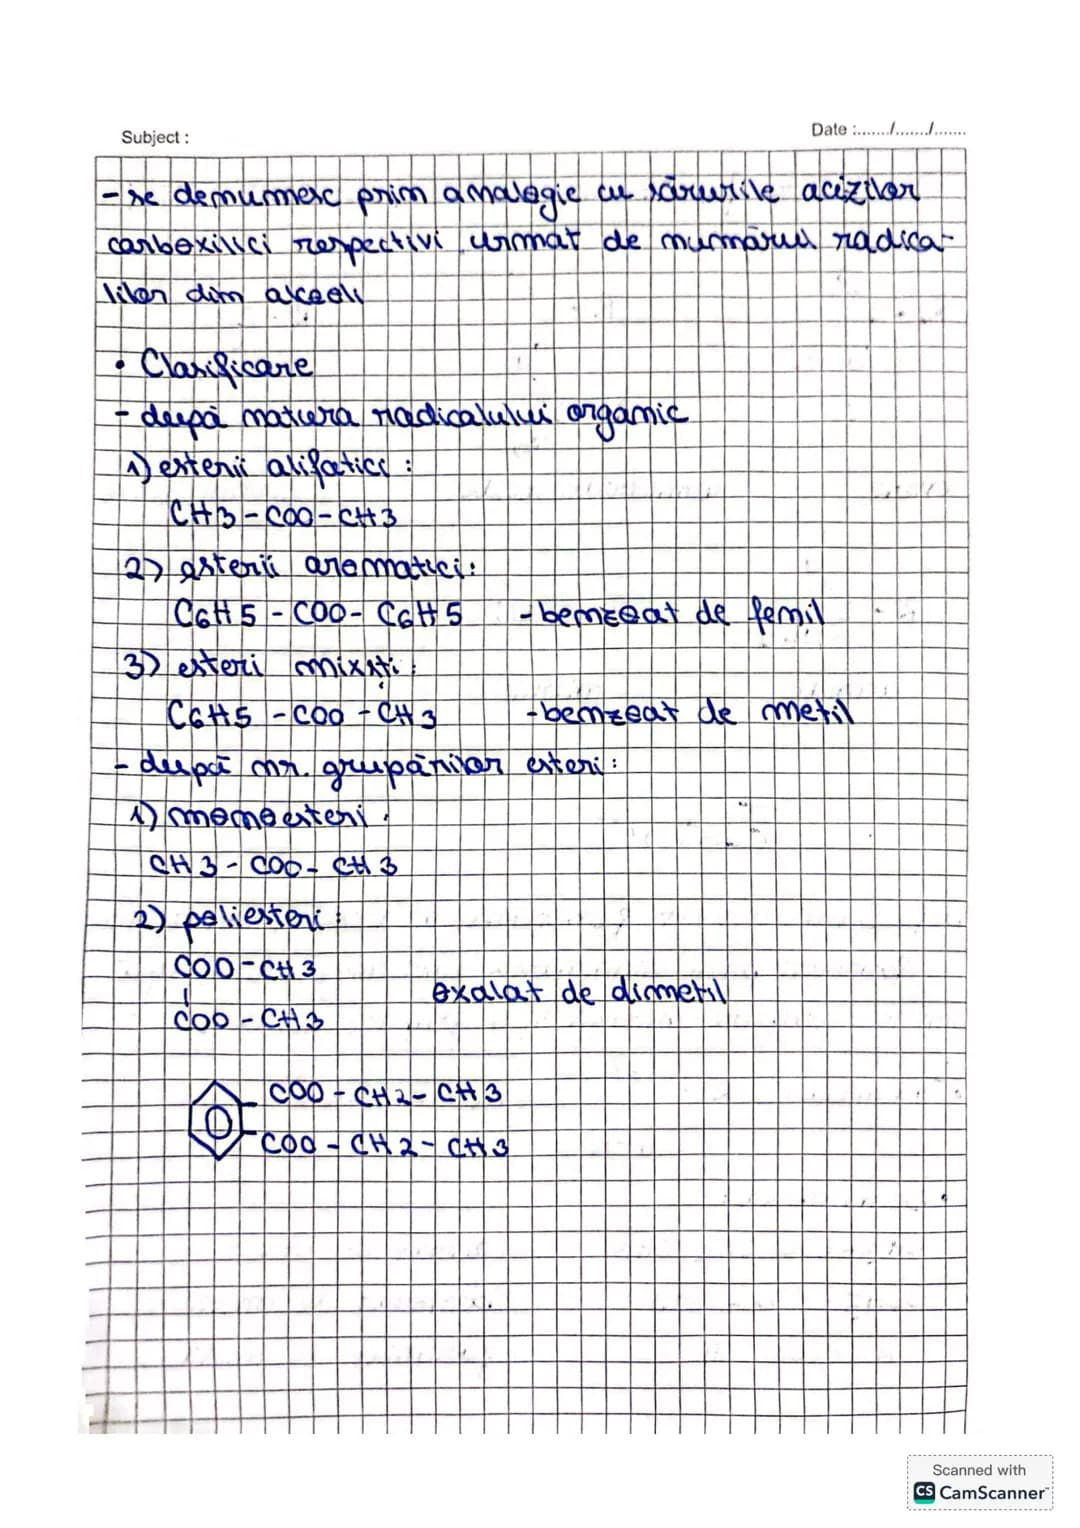 Subject :
Date :......./......./.......
- se denumesc prin analogie cu sărurile acizilor
carboxilici respectivi urmat de numărul radica-
lilor din alcooli
• Clasificare
- după natura radicalului organic
1) esterii alifatici :
CH3-COO-CH3
2) esterii aromatici:
C6H5-COO-C6H5 -benzoat de fenil
3) esteri micști :
C6H5-COO-CH3 -benzoat de metil
- după nr. grupărilor esteri :
1) monoesteri :
CH3-COO-CH3
2) poliesteri :
COO-CH3
|
COO-CH3
oxalat de dimetil
COO-CH2-CH3
COO-CH2-CH3
Scanned with
CS CamScanner